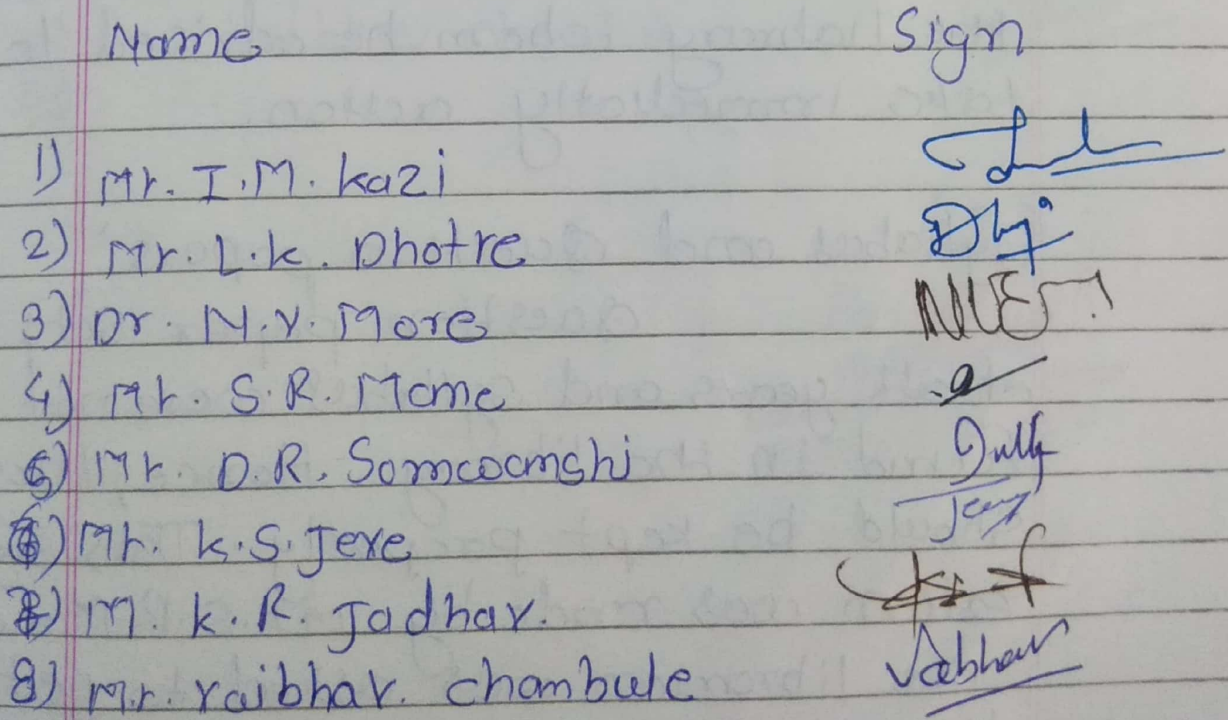 Name Sign
1) Mr. I.M. Kazi
2) Mr. L.K. Dhotre
3) Dr. N.V. More
4) Mr. S.R. Mane
5) Mr. D.R. Somwamshi
6) Mr. K.S. Jere
7) M. K.R. Jadhav.
8) Mr. Vaibhav. Chambule Vaibhav